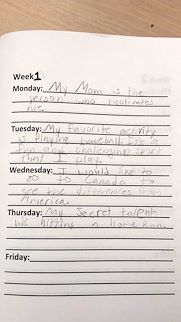 Week 1
Monday: My Mom is the
person who motivates
me.
Tuesday: My favorite activity
is playing baseball. It's a
fun and challenging sport
that I play.
Wednesday: I would like to
go to Canada to
see the differences from
America.
Thursday: My Secret talent
is hitting a home run.
Friday: